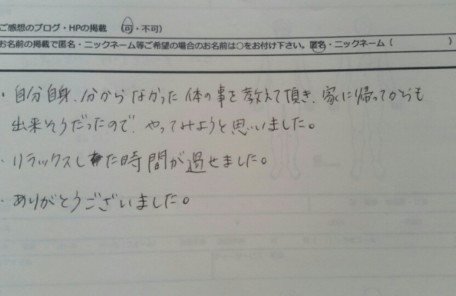 ご感想のブログ・HPの掲載 (可・不可)
お名前の掲載で匿名・ニックネーム等ご希望の場合のお名前は○をお付け下さい。匿名・ニックネーム( )
・自分自身、分からなかった体の事を教えて頂き、家に帰ってからも
出来そうだったので、やってみようと思いました。
・リラックスした時間が過せました。
・ありがとうございました。